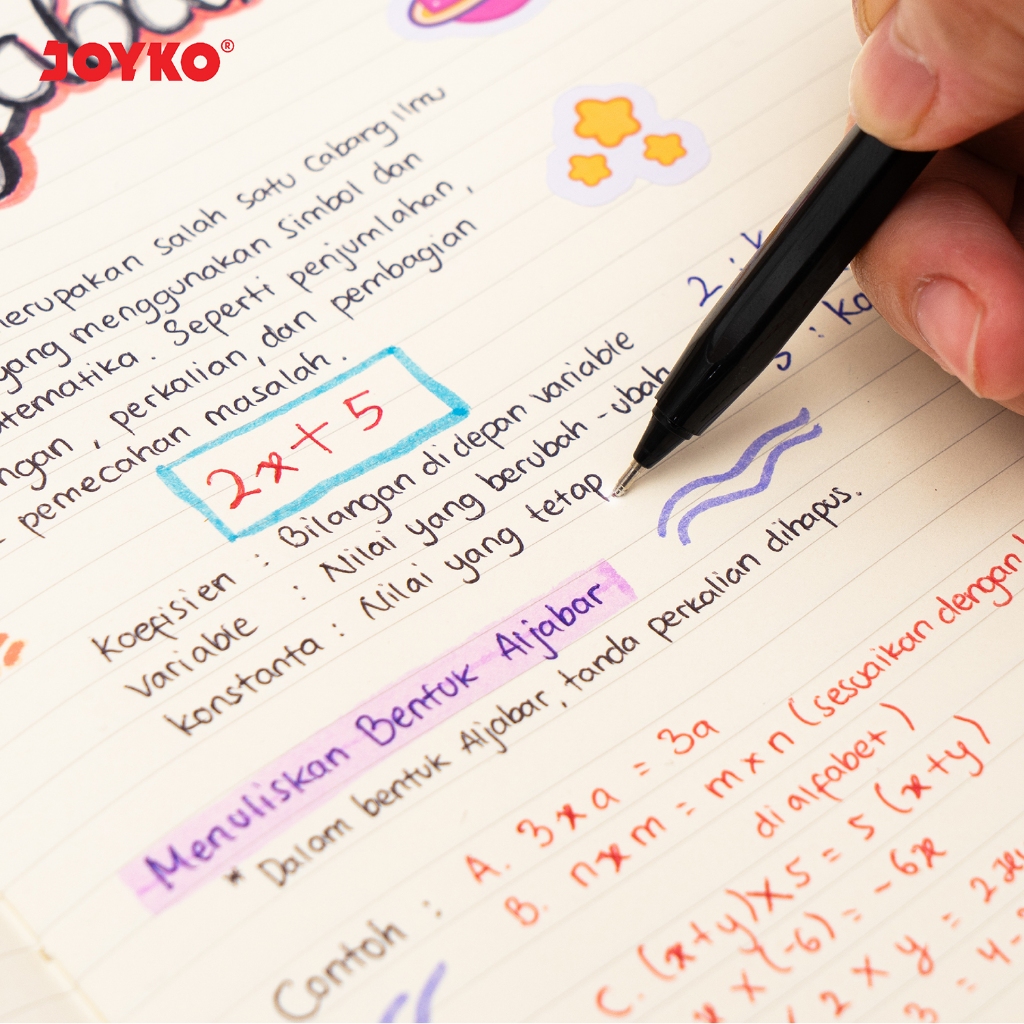 JOYKO®
salah satu cabang ilmu
yang menggunakan simbol dan
Seperti penjumlahan,
, perkalian, dan pembagian
pemecahan masalah.
2x + 5
2 :
: Ko
Koefisien : Bilangan di depan variable
variable : Nilai yang berubah - ubah
konstanta : Nilai yang tetap
Menuliskan Bentuk Aljabar
* Dalam bentuk Aljabar, tanda perkalian dihapus.
Contoh : A. 3 x a = 3a
B. n x m = m x n (sesuaikan dengan
di alfabet)
C. (x+y) x 5 = 5 (x+y)
x (-6) = -6x
2 x y =